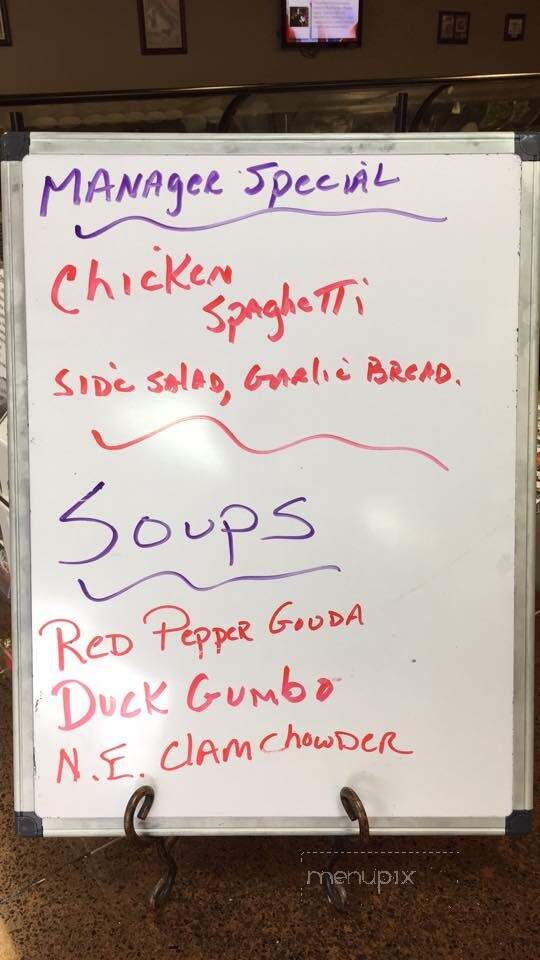 MANAger Special
Chicken
Spaghetti
Side Salad, Garlic Bread.
Soups
Red Pepper Gouda
Duck Gumbo
N.E. Clam Chowder
menupix